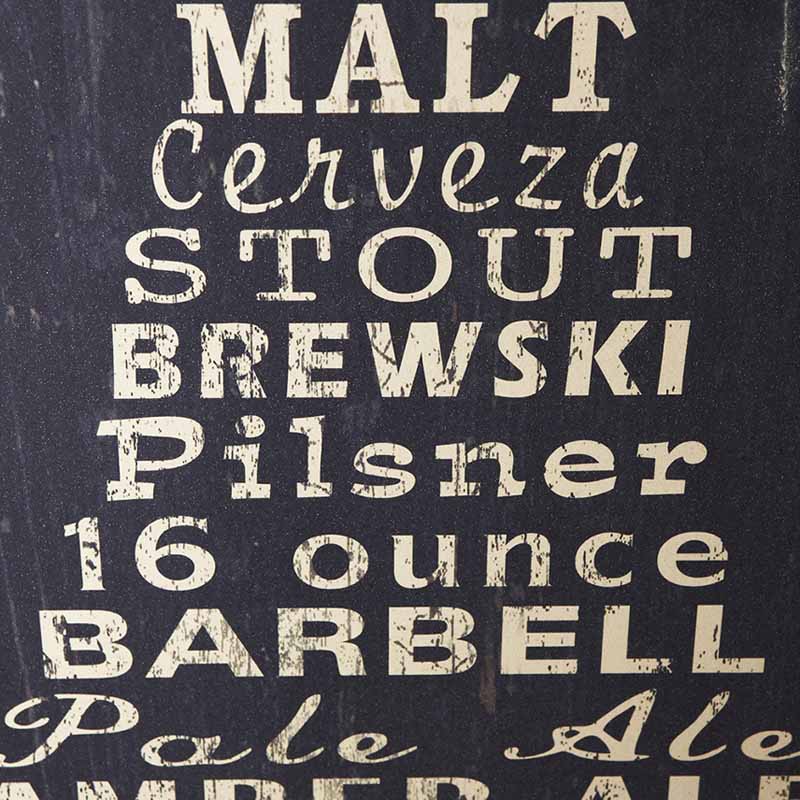 MALT
Cerveza
STOUT
BREWSKI
Pilsner
16 ounce
BARBELL
Pale Ale
AMBER ALE